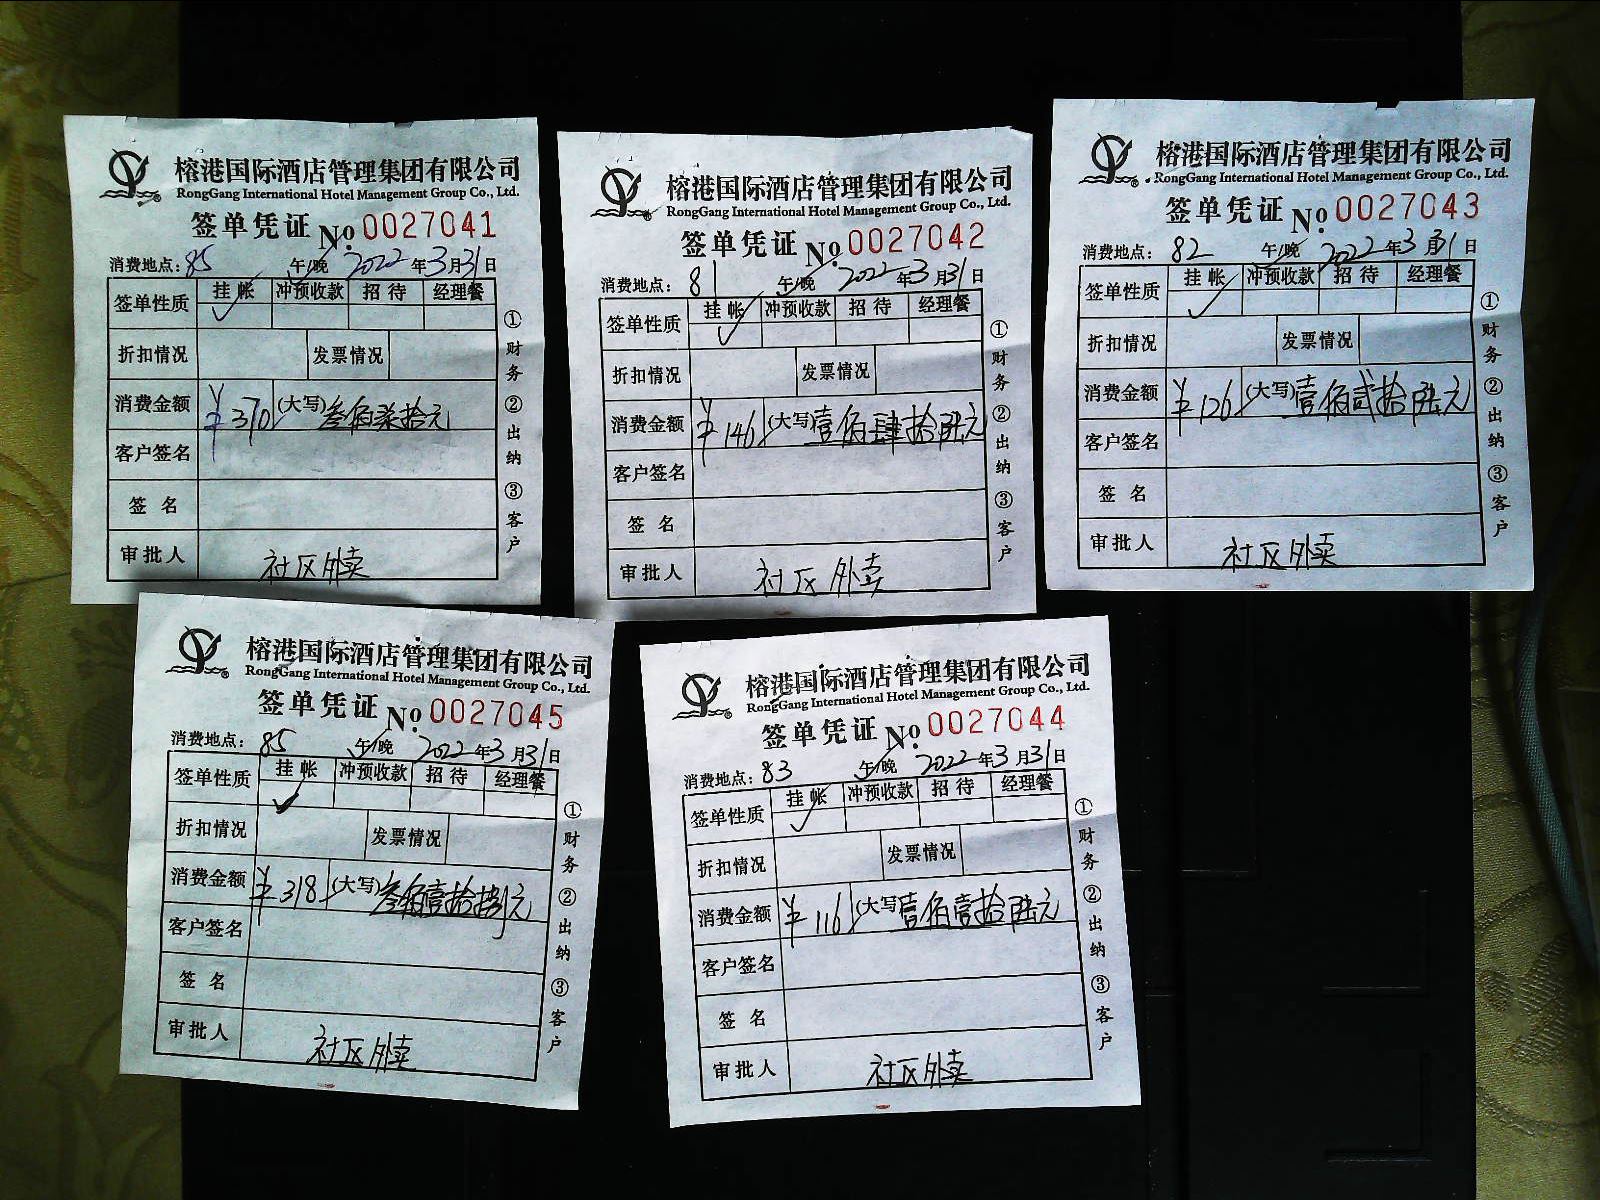 榕港国际酒店管理集团有限公司
RongGang International Hotel Management Group Co., Ltd.
签单凭证 No. 0027041
消费地点：85 午/晚 2022年3月31日
签单性质 挂帐 ✓ 冲预收款 招待 经理餐
折扣情况 发票情况
消费金额 ¥370 (大写)叁佰柒拾元
客户签名
签名
审批人 社区外卖
①财务 ②出纳 ③客户
榕港国际酒店管理集团有限公司
RongGang International Hotel Management Group Co., Ltd.
签单凭证 No. 0027042
消费地点：81 午/晚 2022年3月31日
签单性质 挂帐 ✓ 冲预收款 招待 经理餐
折扣情况 发票情况
消费金额 ¥146 (大写)壹佰肆拾陆元
客户签名
签名
审批人 社区外卖
①财务 ②出纳 ③客户
榕港国际酒店管理集团有限公司
RongGang International Hotel Management Group Co., Ltd.
签单凭证 No. 0027043
消费地点：82 午/晚 2022年3月31日
签单性质 挂帐 ✓ 冲预收款 招待 经理餐
折扣情况 发票情况
消费金额 ¥126 (大写)壹佰贰拾陆元
客户签名
签名
审批人 社区外卖
①财务 ②出纳 ③客户
榕港国际酒店管理集团有限公司
RongGang International Hotel Management Group Co., Ltd.
签单凭证 No. 0027045
消费地点：85 午/晚 2022年3月31日
签单性质 挂帐 ✓ 冲预收款 招待 经理餐
折扣情况 发票情况
消费金额 ¥318 (大写)叁佰壹拾捌元
客户签名
签名
审批人 社区外卖
①财务 ②出纳 ③客户
榕港国际酒店管理集团有限公司
RongGang International Hotel Management Group Co., Ltd.
签单凭证 No. 0027044
消费地点：83 午/晚 2022年3月31日
签单性质 挂帐 ✓ 冲预收款 招待 经理餐
折扣情况 发票情况
消费金额 ¥116 (大写)壹佰壹拾陆元
客户签名
签名
审批人 社区外卖
①财务 ②出纳 ③客户